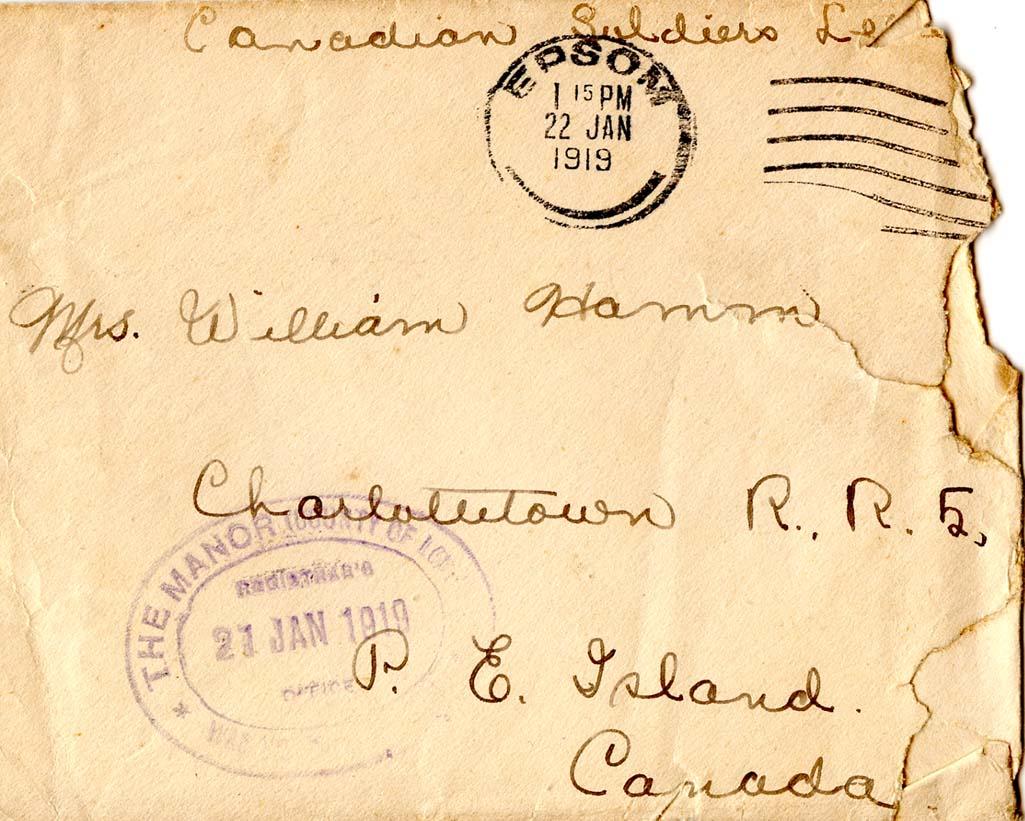 Canadian Soldiers
EPSOM
1 15 PM
22 JAN
1919
Mrs. William Hamm
Charlottetown R. R. 5.
THE MANOR (COUNTY OF
REGISTRAR'S
21 JAN 1919
OFFICE
P. E. Island.
Canada